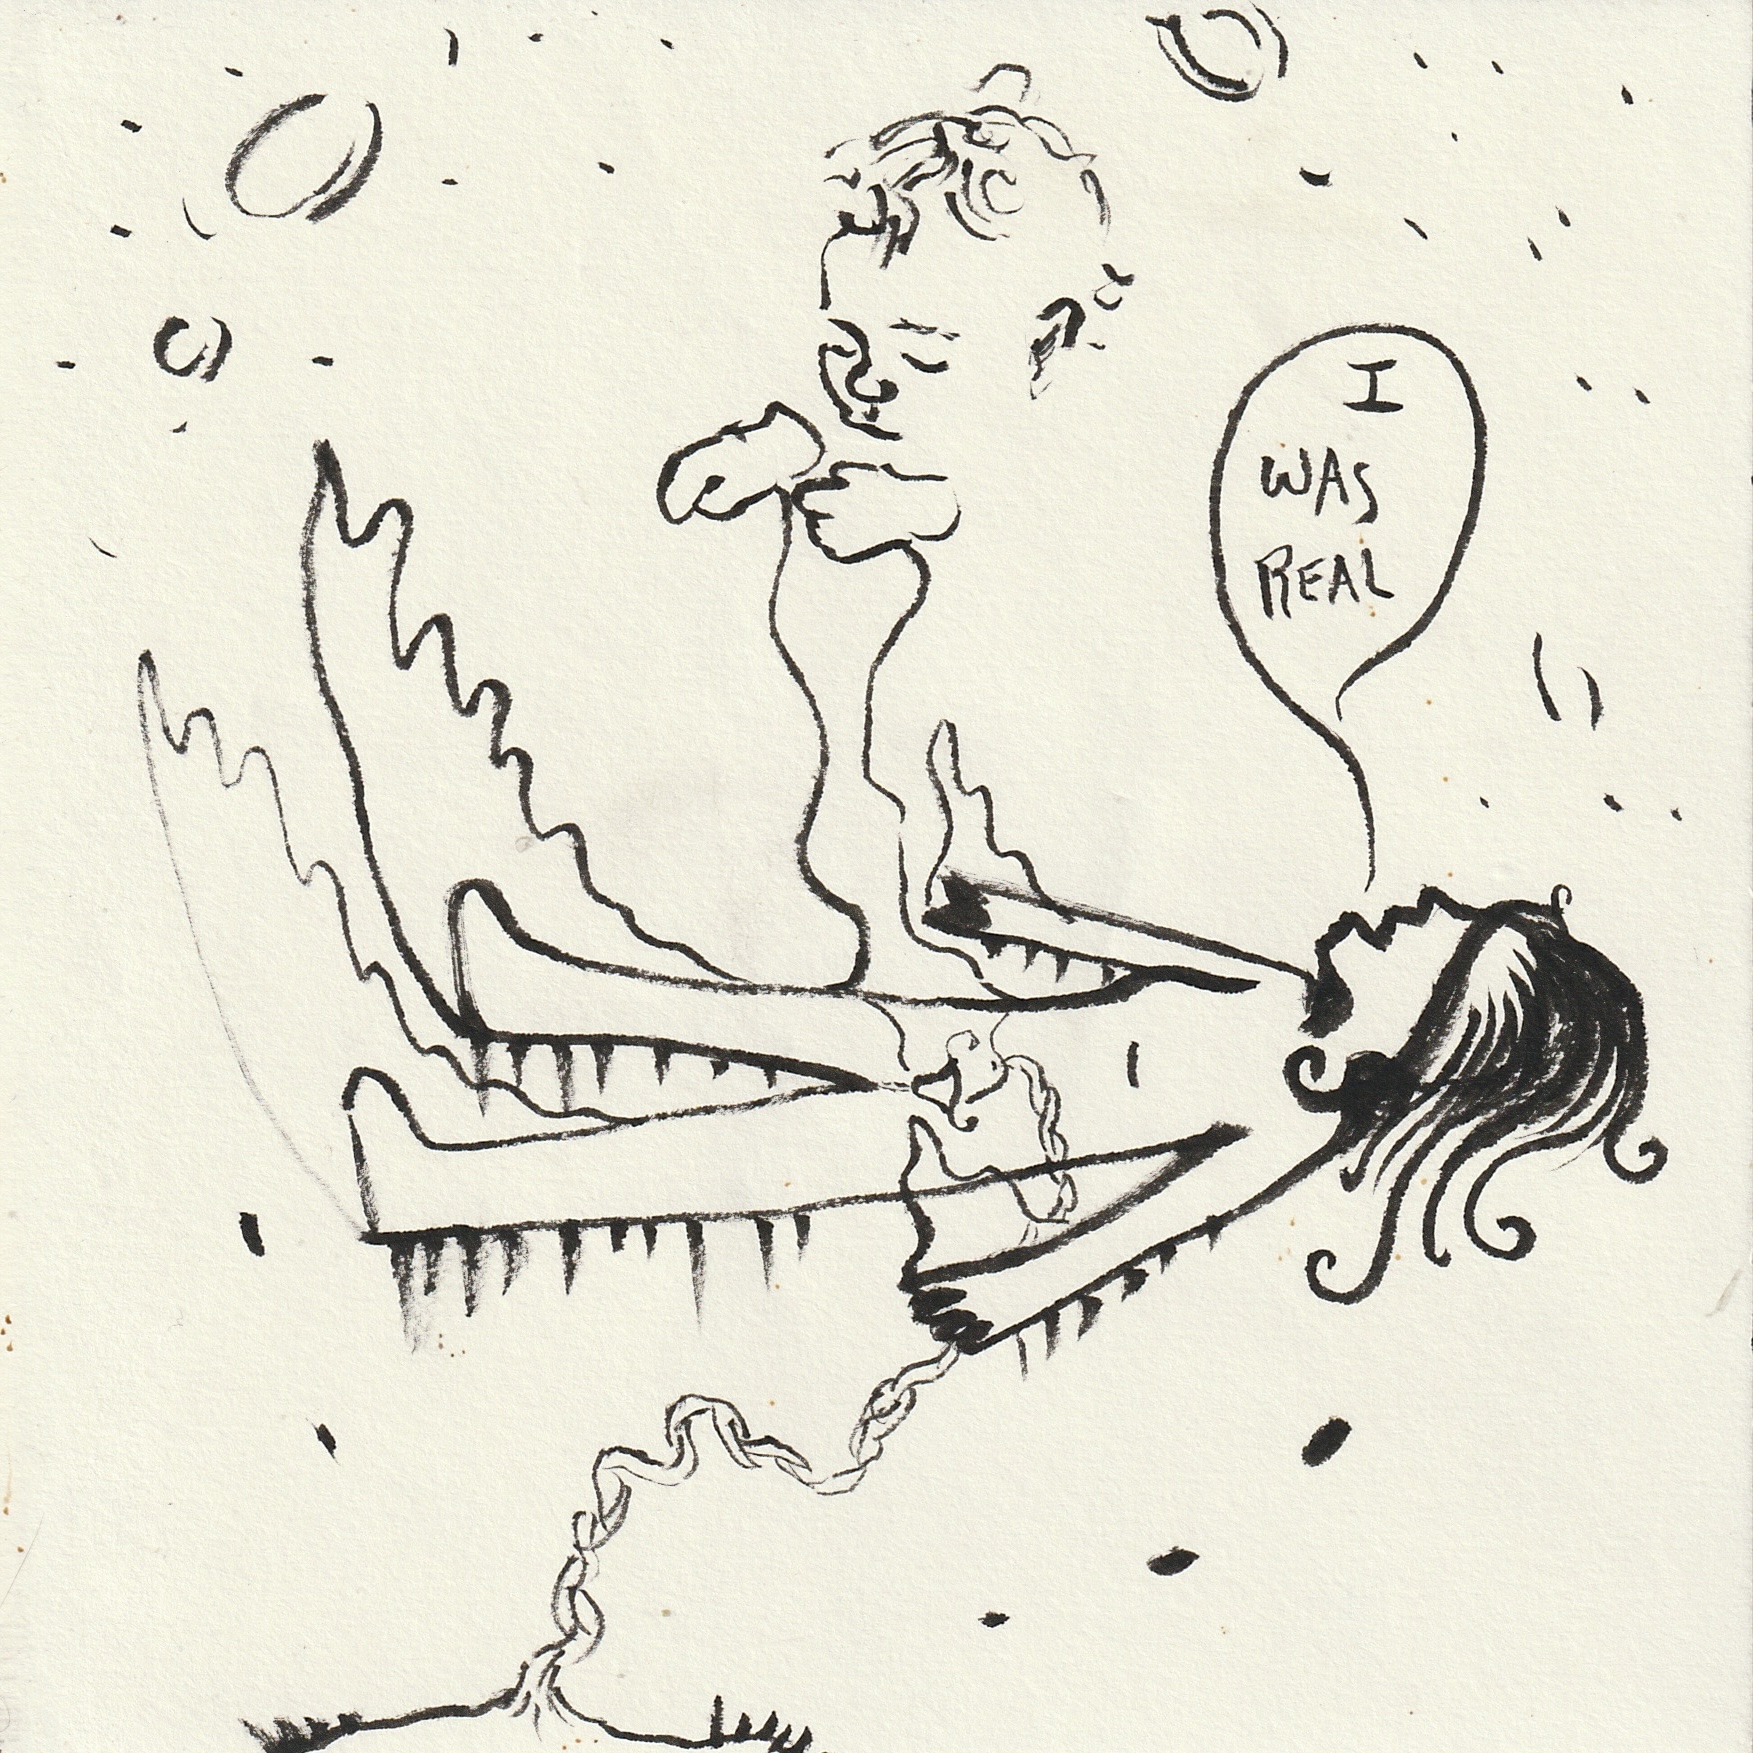 I
WAS
REAL